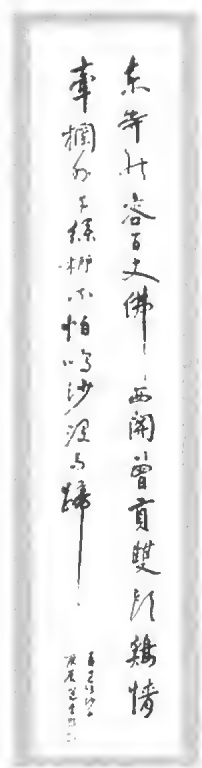 東寺能容百丈佛西關曾貢雙頭鷄情
牽欄外千絲柳不怕鳴沙沒馬蹄